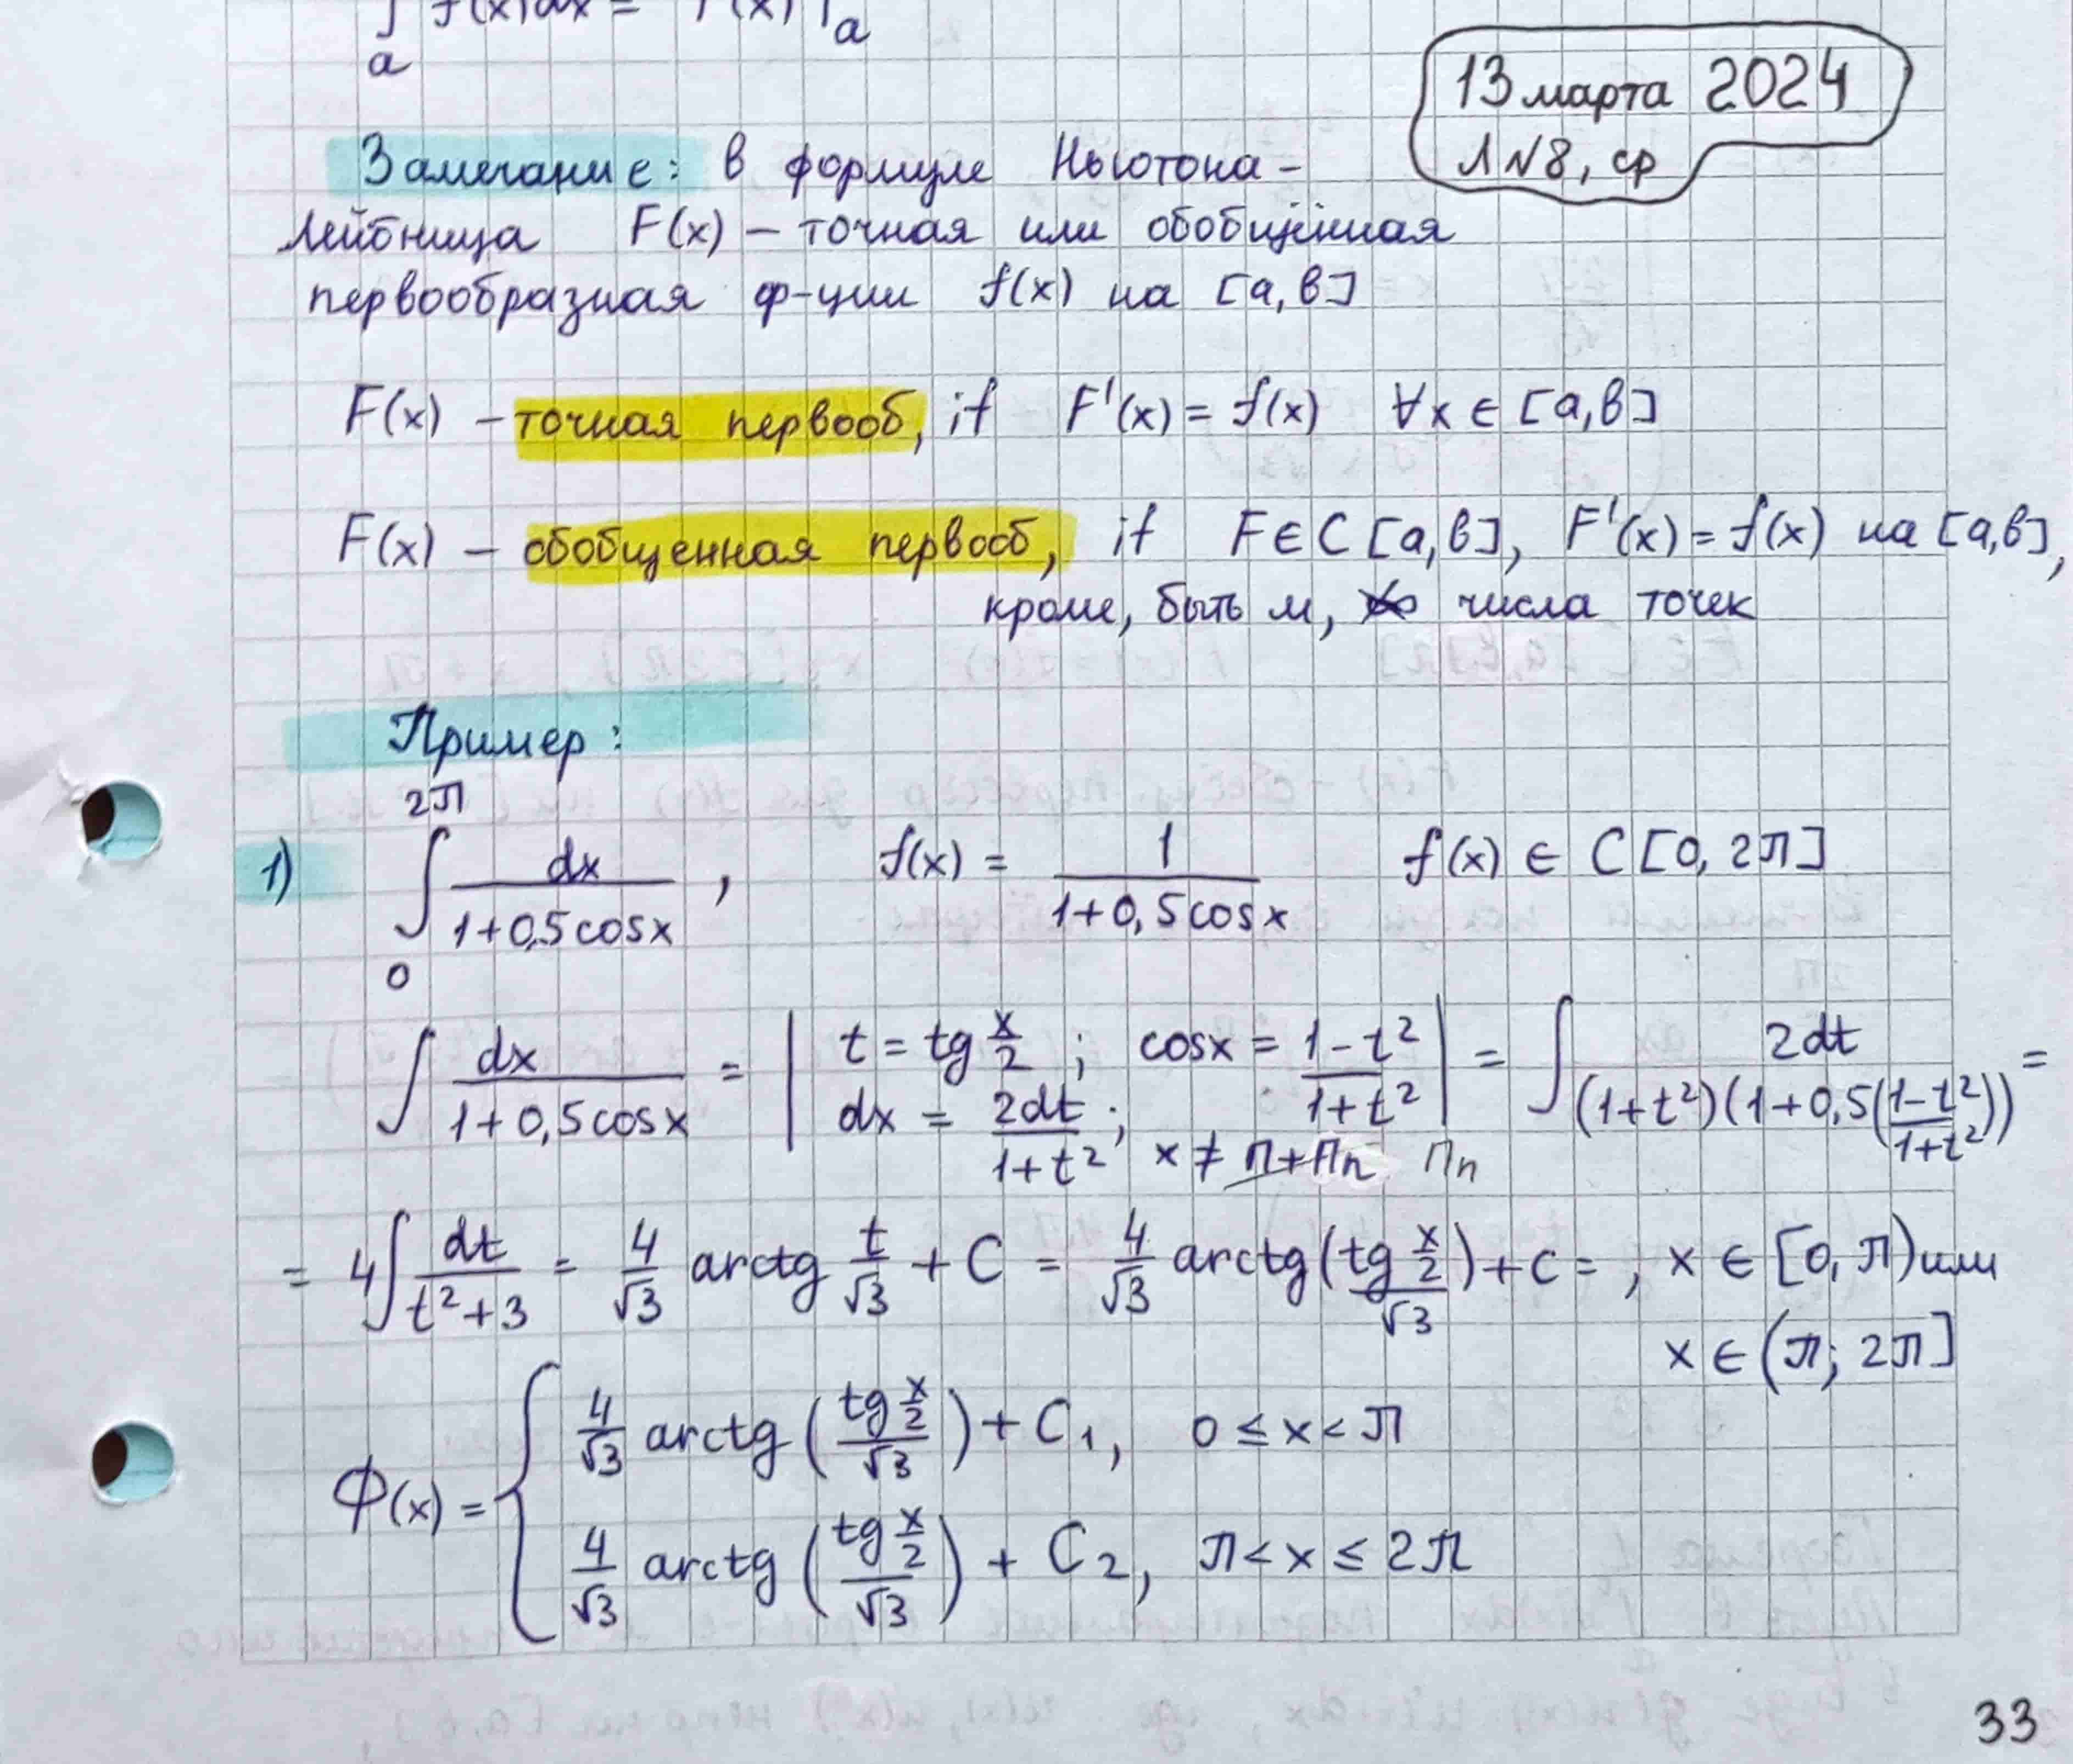 ∫ f(x)dx = F(x) |a
a
13 марта 2024
Л N8, ср
Замечание: в формуле Ньютона -
Лейбница F(x) – точная или обобщённая
первообразная ф-ции f(x) на [a,b]
F(x) – точная первооб, if F'(x) = f(x) ∀x ∈ [a,b]
F(x) – обобщенная первооб, if F∈C[a,b], F'(x) = f(x) на [a,b],
кроме, быть м, числа точек
Пример:
2π
1) ∫ dx/(1+0,5cosx) , f(x) = 1/(1+0,5cosx) f(x) ∈ C[0, 2π]
0
∫ dx/(1+0,5cosx) = | t = tg x/2 ; cosx = (1-t²)/(1+t²) | = ∫ 2dt/((1+t²)(1+0,5((1-t²)/(1+t²)))) =
dx = 2dt/(1+t²) ; x ≠ π+πn πn
= 4∫ dt/(t²+3) = 4/√3 arctg t/√3 + C = 4/√3 arctg(tg x/2 /√3) + c = , x ∈ [0, π) или
x ∈ (π; 2π]
Φ(x) = { 4/√3 arctg (tg x/2 /√3) + C₁, 0 ≤ x < π
4/√3 arctg (tg x/2 /√3) + C₂, π < x ≤ 2π
33